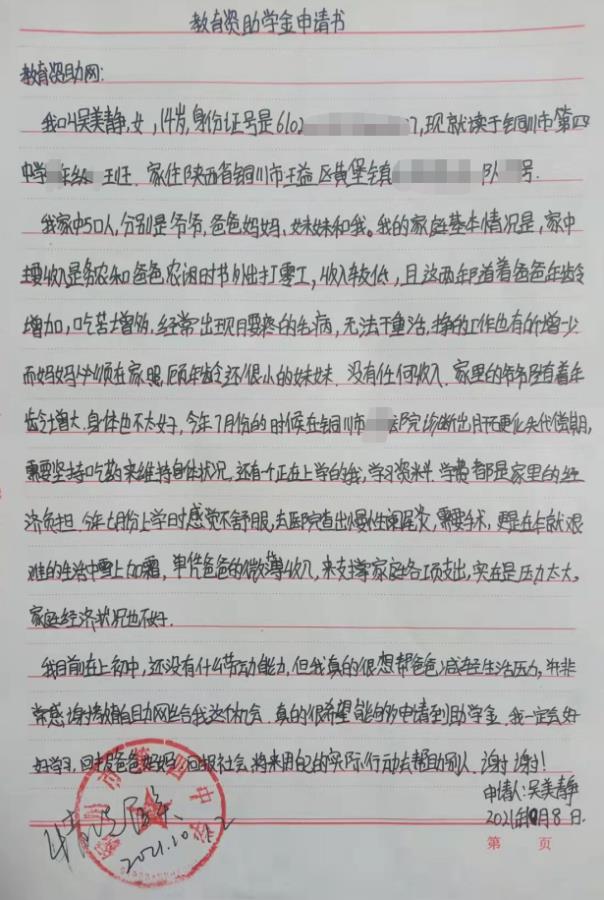 教育资助学金申请书
教育资助网:
我叫吴美静,女,14岁,身份证号是6102 7,现就读于铜川市第四
中学 年级 班. 家住陕西省铜川市王益区黄堡镇 队 号.
我家中5口人,分别是爷爷,爸爸妈妈、妹妹和我。我的家庭基本情况是,家中
主要收入是务农和爸爸农闲时节外出打零工,收入较低,且这两年随着爸爸年龄
增加,吃苦增多.经常出现腰疼的毛病,无法干重活.挣的工作也有所增少
而妈妈必须在家照顾年龄还很小的妹妹.没有任何收入.家里的爷爷随着年
龄增大.身体也不太好,今年7月份的时候在铜川市 医院诊断出肝硬化失代偿期,
需要坚持吃药来维持身体状况.还有个正在上学的我,学习资料.学费都是家里的经
济负担.今年七月份上学时感觉不舒服,去医院查出慢性阑尾炎,需要手术,更是在本就艰
难的生活中雪上加霜,单凭爸爸的微薄收入,来支撑家庭各项支出,实在是压力太大。
家庭经济状况也不好.
我目前在上初中,还没有什么劳动能力,但我真的很想帮爸爸减轻生活压力,并非
常感谢教育资助网给我这个机会.真的很希望能够申请到助学金.我一定会好
好学习,回报爸爸妈妈,回报社会,将来用自己的实际行动去帮助别人.谢谢!
申请人:吴美静
2021年10月8日.
情况属实
2021.10.12
铜川市第四中学
第 页